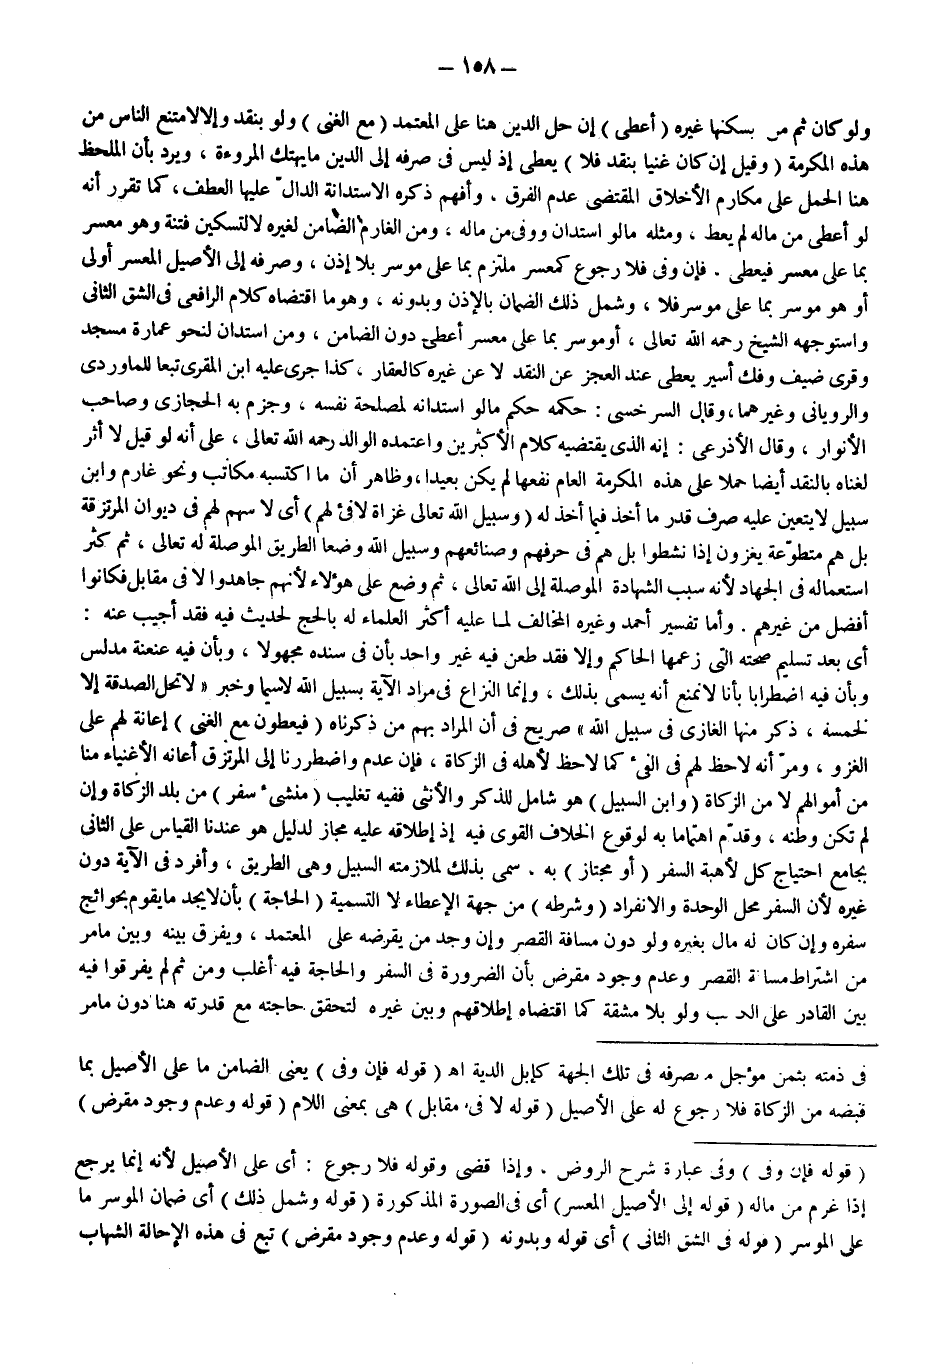 — ١٥٨ —
ولو كان ثم من يسكنها غيره ( أعطى ) إن حل الدين هنا على المعتمد ( مع الغنى ) ولو بنقد وإلا لامتنع الناس من
هذه المكرمة ( وقيل إن كان غنيا بنقد فلا ) يعطى إذ ليس فى صرفه إلى الدين مايهتك المروءة ، ويرد بأن الملحظ
هنا الحمل على مكارم الأخلاق المقتضى عدم الفرق . وأفهم ذكره الاستدانة الدالّ عليها العطف ، كما تقرر أنه
لو أعطى من ماله لم يعط ، ومثله مالو استدان ووفى من ماله ، ومن الغارم الضامن لغيره لا لتسكين فتنة وهو معسر
بما على معسر فيعطى . فإن وفى فلا رجوع كمعسر ملتزم بما على موسر بلا إذن ، وصرفه إلى الأصيل المعسر أولى
أو هو موسر بما على موسر فلا ، وشمل ذلك الضمان بالإذن وبدونه ، وهو ما اقتضاه كلام الرافعى فى الشق الثانى
واستوجهه الشيخ رحمه الله تعالى ، أو موسر بما على معسر أعطى دون الضامن ، ومن استدان لنحو عمارة مسجد
وقرى ضيف وفك أسير يعطى عند العجز عن النقد لا عن غيره كالعقار ، كذا جرى عليه ابن المقرى تبعا للماوردى
والرويانى وغيرهما ، وقال السرخسى : حكمه حكم مالو استدانه لمصلحة نفسه ، وجزم به الحجازى وصاحب
الأنوار ، وقال الأذرعى : إنه الذى يقتضيه كلام الأكثرين واعتمده الوالد رحمه الله تعالى ، على أنه لو قيل لا أثر
لغناه بالنقد أيضا حملا على هذه المكرمة العام نفعها لم يكن بعيدا ، وظاهر أن ما اكتسبه مكاتب ونحو غارم وابن
سبيل لا يتعين عليه صرف قدر ما أخذ فيما أخذ له ( وسبيل الله تعالى غزاة لافىء لهم ) أى لا سهم لهم فى ديوان المرتزقة
بل هم متطوّعة يغزون إذا نشطوا بل هم فى حرفهم وصنائعهم وسبيل الله وضعا الطريق الموصلة له تعالى ، ثم كثر
استعماله فى الجهاد لأنه سبب الشهادة الموصلة إلى الله تعالى ، ثم وضع على هؤلاء لأنهم جاهدوا لا فى مقابل فكانوا
أفضل من غيرهم . وأما تفسير أحمد وغيره المخالف لما عليه أكثر العلماء له بالحج لحديث فيه فقد أجيب عنه :
أى بعد تسليم صحته التى زعمها الحاكم وإلا فقد طعن فيه غير واحد بأن فى سنده مجهولا ، وبأن فيه عنعنة مدلس
وبأن فيه اضطرابا بأنا لا نمنع أنه يسمى بذلك ، وإنما النزاع فى مراد الآية بسبيل الله لاسيما وخبر « لاتحل الصدقة إلا
لخمسة ، ذكر منها الغازى فى سبيل الله » صريح فى أن المراد بهم من ذكرناه ( فيعطون مع الغنى ) إعانة لهم على
الغزو ، ومرّ أنه لاحظ لهم فى الفىء كما لاحظ لأهله فى الزكاة ، فإن عدم واضطررنا إلى المرتزق أعانه الأغنياء منا
من أموالهم لا من الزكاة ( وابن السبيل ) هو شامل للذكر والأنثى ففيه تغليب ( منشىء سفر ) من بلد الزكاة وإن
لم تكن وطنه ، وقدّم اهتماما به لوقوع الخلاف القوى فيه إذ إطلاقه عليه مجاز لدليل هو عندنا القياس على الثانى
بجامع احتياج كل لأهبة السفر ( أو مجتاز ) به . سمى بذلك لملازمته السبيل وهى الطريق ، وأفرد فى الآية دون
غيره لأن السفر محل الوحدة والانفراد ( وشرطه ) من جهة الإعطاء لا التسمية ( الحاجة ) بأن لايجد مايقوم بحوائج
سفره وإن كان له مال بغيره ولو دون مسافة القصر وإن وجد من يقرضه على المعتمد ، ويفرق بينه وبين مامر
من اشتراط مسافة القصر وعدم وجود مقرض بأن الضرورة فى السفر والحاجة فيه أغلب ومن ثم لم يفرقوا فيه
بين القادر على الكسب ولو بلا مشقة كما اقتضاه إطلاقهم وبين غيره لتحقق حاجته مع قدرته هنا دون مامر
فى ذمته بثمن مؤجل مصرفه فى تلك الجهة كإبل الدية اه ( قوله فإن وفى ) يعنى الضامن ما على الأصيل بما
قبضه من الزكاة فلا رجوع له على الأصيل ( قوله لا فى مقابل ) هى بمعنى اللام ( قوله وعدم وجود مقرض )
( قوله فإن وفى ) وفى عبارة شرح الروض . وإذا قضى وقوله فلا رجوع : أى على الأصيل لأنه إنما يرجع
إذا غرم من ماله ( قوله إلى الأصيل المعسر ) أى فى الصورة المذكورة ( قوله وشمل ذلك ) أى ضمان الموسر ما
على الموسر ( قوله فى الشق الثانى ) أى قوله وبدونه ( قوله وعدم وجود مقرض ) تبع فى هذه الإحالة الشهاب